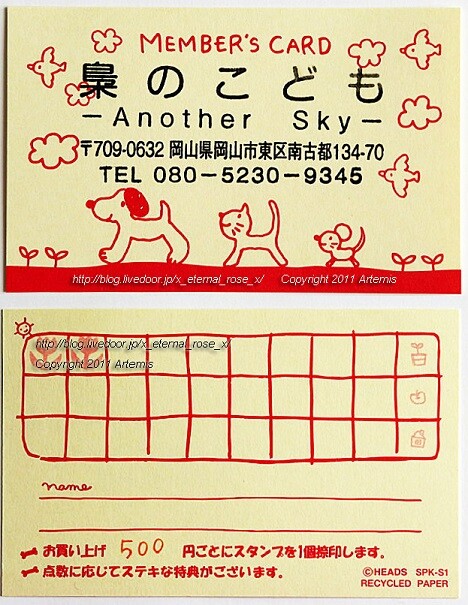 MEMBER'S CARD
梟のこども
－Another Sky－
〒709-0632 岡山県岡山市東区南古都134-70
TEL 080－5230－9345
http://blog.livedoor.jp/x_eternal_rose_x/ Copyright 2011 Artemis
http://blog.livedoor.jp/x_eternal_rose_x/
Copyright 2011 Artemis
name
お買い上げ 500 円ごとにスタンプを1個捺印します。
点数に応じてステキな特典がございます。
©HEADS SPK-S1
RECYCLED PAPER